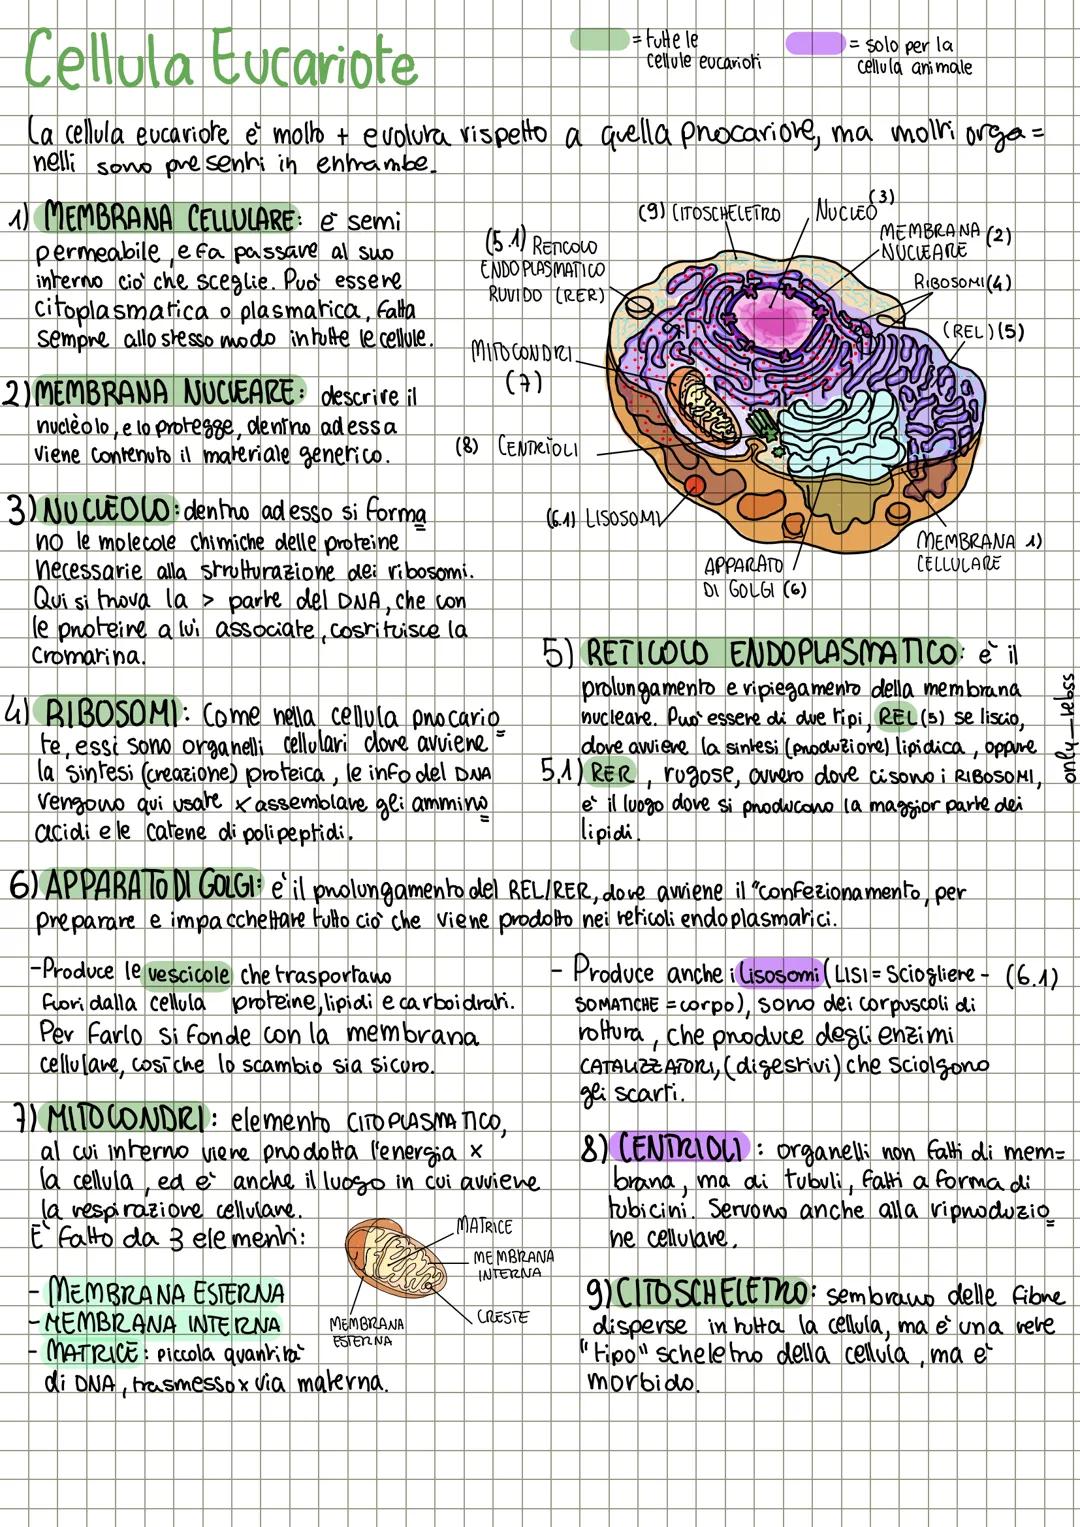 Cellula Eucariote
= tutte le
cellule eucarioti
= solo per la
cellula animale
La cellula eucariote è molto + evoluta rispetto a quella procariote, ma molti orga=
nelli sono presenti in entrambe.
1) MEMBRANA CELLULARE: è semi
permeabile, e fa passare al suo
interno ciò che sceglie. Può essere
citoplasmatica o plasmatica, fatta
sempre allo stesso modo in tutte le cellule.
2) MEMBRANA NUCLEARE: descrive il
nuclèolo, e lo protegge, dentro ad essa
viene contenuto il materiale genetico.
3) NUCLEOLO: dentro ad esso si forma
no le molecole chimiche delle proteine
necessarie alla strutturazione dei ribosomi.
Qui si trova la > parte del DNA, che con
le proteine a lui associate, costituisce la
cromatina.
4) RIBOSOMI: Come nella cellula procario=
te, essi sono organelli cellulari dove avviene
la sintesi (creazione) proteica, le info del DNA
vengono qui usate x assemblare gli ammino=
acidi e le catene di polipeptidi.
(9) CITOSCHELETRO
NUCLEO (3)
(5.1) RETICOLO
ENDOPLASMATICO
RUVIDO (RER)
MEMBRANA (2)
NUCLEARE
RIBOSOMI (4)
(REL) (5)
MITOCONDRI
(7)
(8) CENTRIOLI
(6.1) LISOSOMI
APPARATO
DI GOLGI (6)
MEMBRANA 1)
CELLULARE
5) RETICOLO ENDOPLASMATICO: è il
prolungamento e ripiegamento della membrana
nucleare. Può essere di due tipi, REL (5) se liscio,
dove avviene la sintesi (produzione) lipidica, oppure
5,1) RER, rugose, ovvero dove ci sono i RIBOSOMI,
è il luogo dove si producono la maggior parte dei
lipidi.
only_leloss
6) APPARATO DI GOLGI: è il prolungamento del REL/RER, dove avviene il "confezionamento, per
preparare e impacchettare tutto ciò che viene prodotto nei reticoli endoplasmatici.
-Produce le vescicole che trasportano
fuori dalla cellula proteine, lipidi e carboidrati.
Per farlo si fonde con la membrana
cellulare, così che lo scambio sia sicuro.
- Produce anche i Lisosomi (LISI = Sciogliere - (6.1)
SOMATICHE = corpo), sono dei corpuscoli di
rottura, che produce degli enzimi
CATALIZZATORI, (digestivi) che sciolgono
gli scarti.
7) MITOCONDRI: elemento CITOPLASMATICO,
al cui interno viene prodotta l'energia x
la cellula, ed è anche il luogo in cui avviene
la respirazione cellulare.
È fatto da 3 elementi:
- MEMBRANA ESTERNA
- MEMBRANA INTERNA
- MATRICE: piccola quantità
di DNA, trasmesso x via materna.
MATRICE
MEMBRANA
INTERNA
CRESTE
MEMBRANA
ESTERNA
8) CENTRIOLI: organelli non fatti di mem=
brana, ma di tubuli, fatti a forma di
tubicini. Servono anche alla riproduzio=
ne cellulare.
9) CITOSCHELETRO: sembrano delle fibre
disperse in tutta la cellula, ma è una rete
"tipo" scheletro della cellula, ma è
morbido.